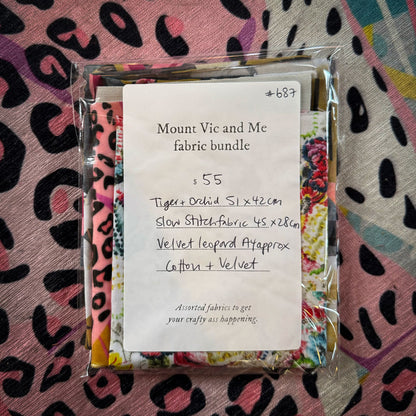 #687
Mount Vic and Me
fabric bundle
$ 55
Tiger + Orchid 51 x 42cm
Slow Stitch fabric 45 x 28cm
Velvet leopard A4 approx
Cotton + Velvet
Assorted fabrics to get
your crafty ass happening.